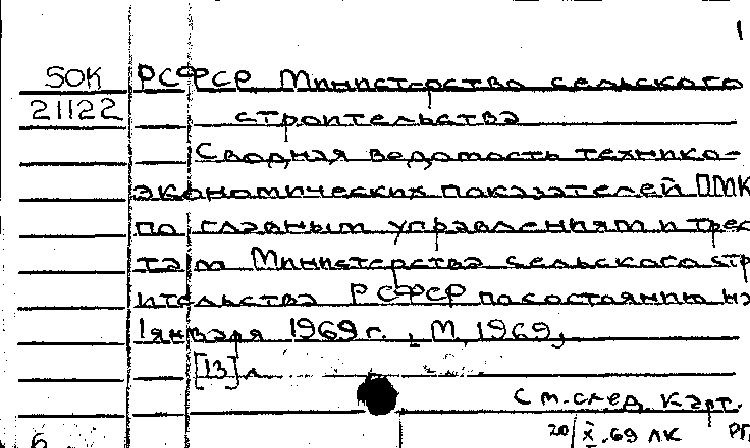 1
50К РСФСР. Министерство сельского
21122 строительства
Сводная ведомость технико-
экономических показателей ПМК
по главным управлениям и трес
там Министерства сельского стр
ительства РСФСР по состоянию на
1 января 1969г., М, 1969,
[13] л.
См. след. карт.
6 20/X.69 ЛК РГ